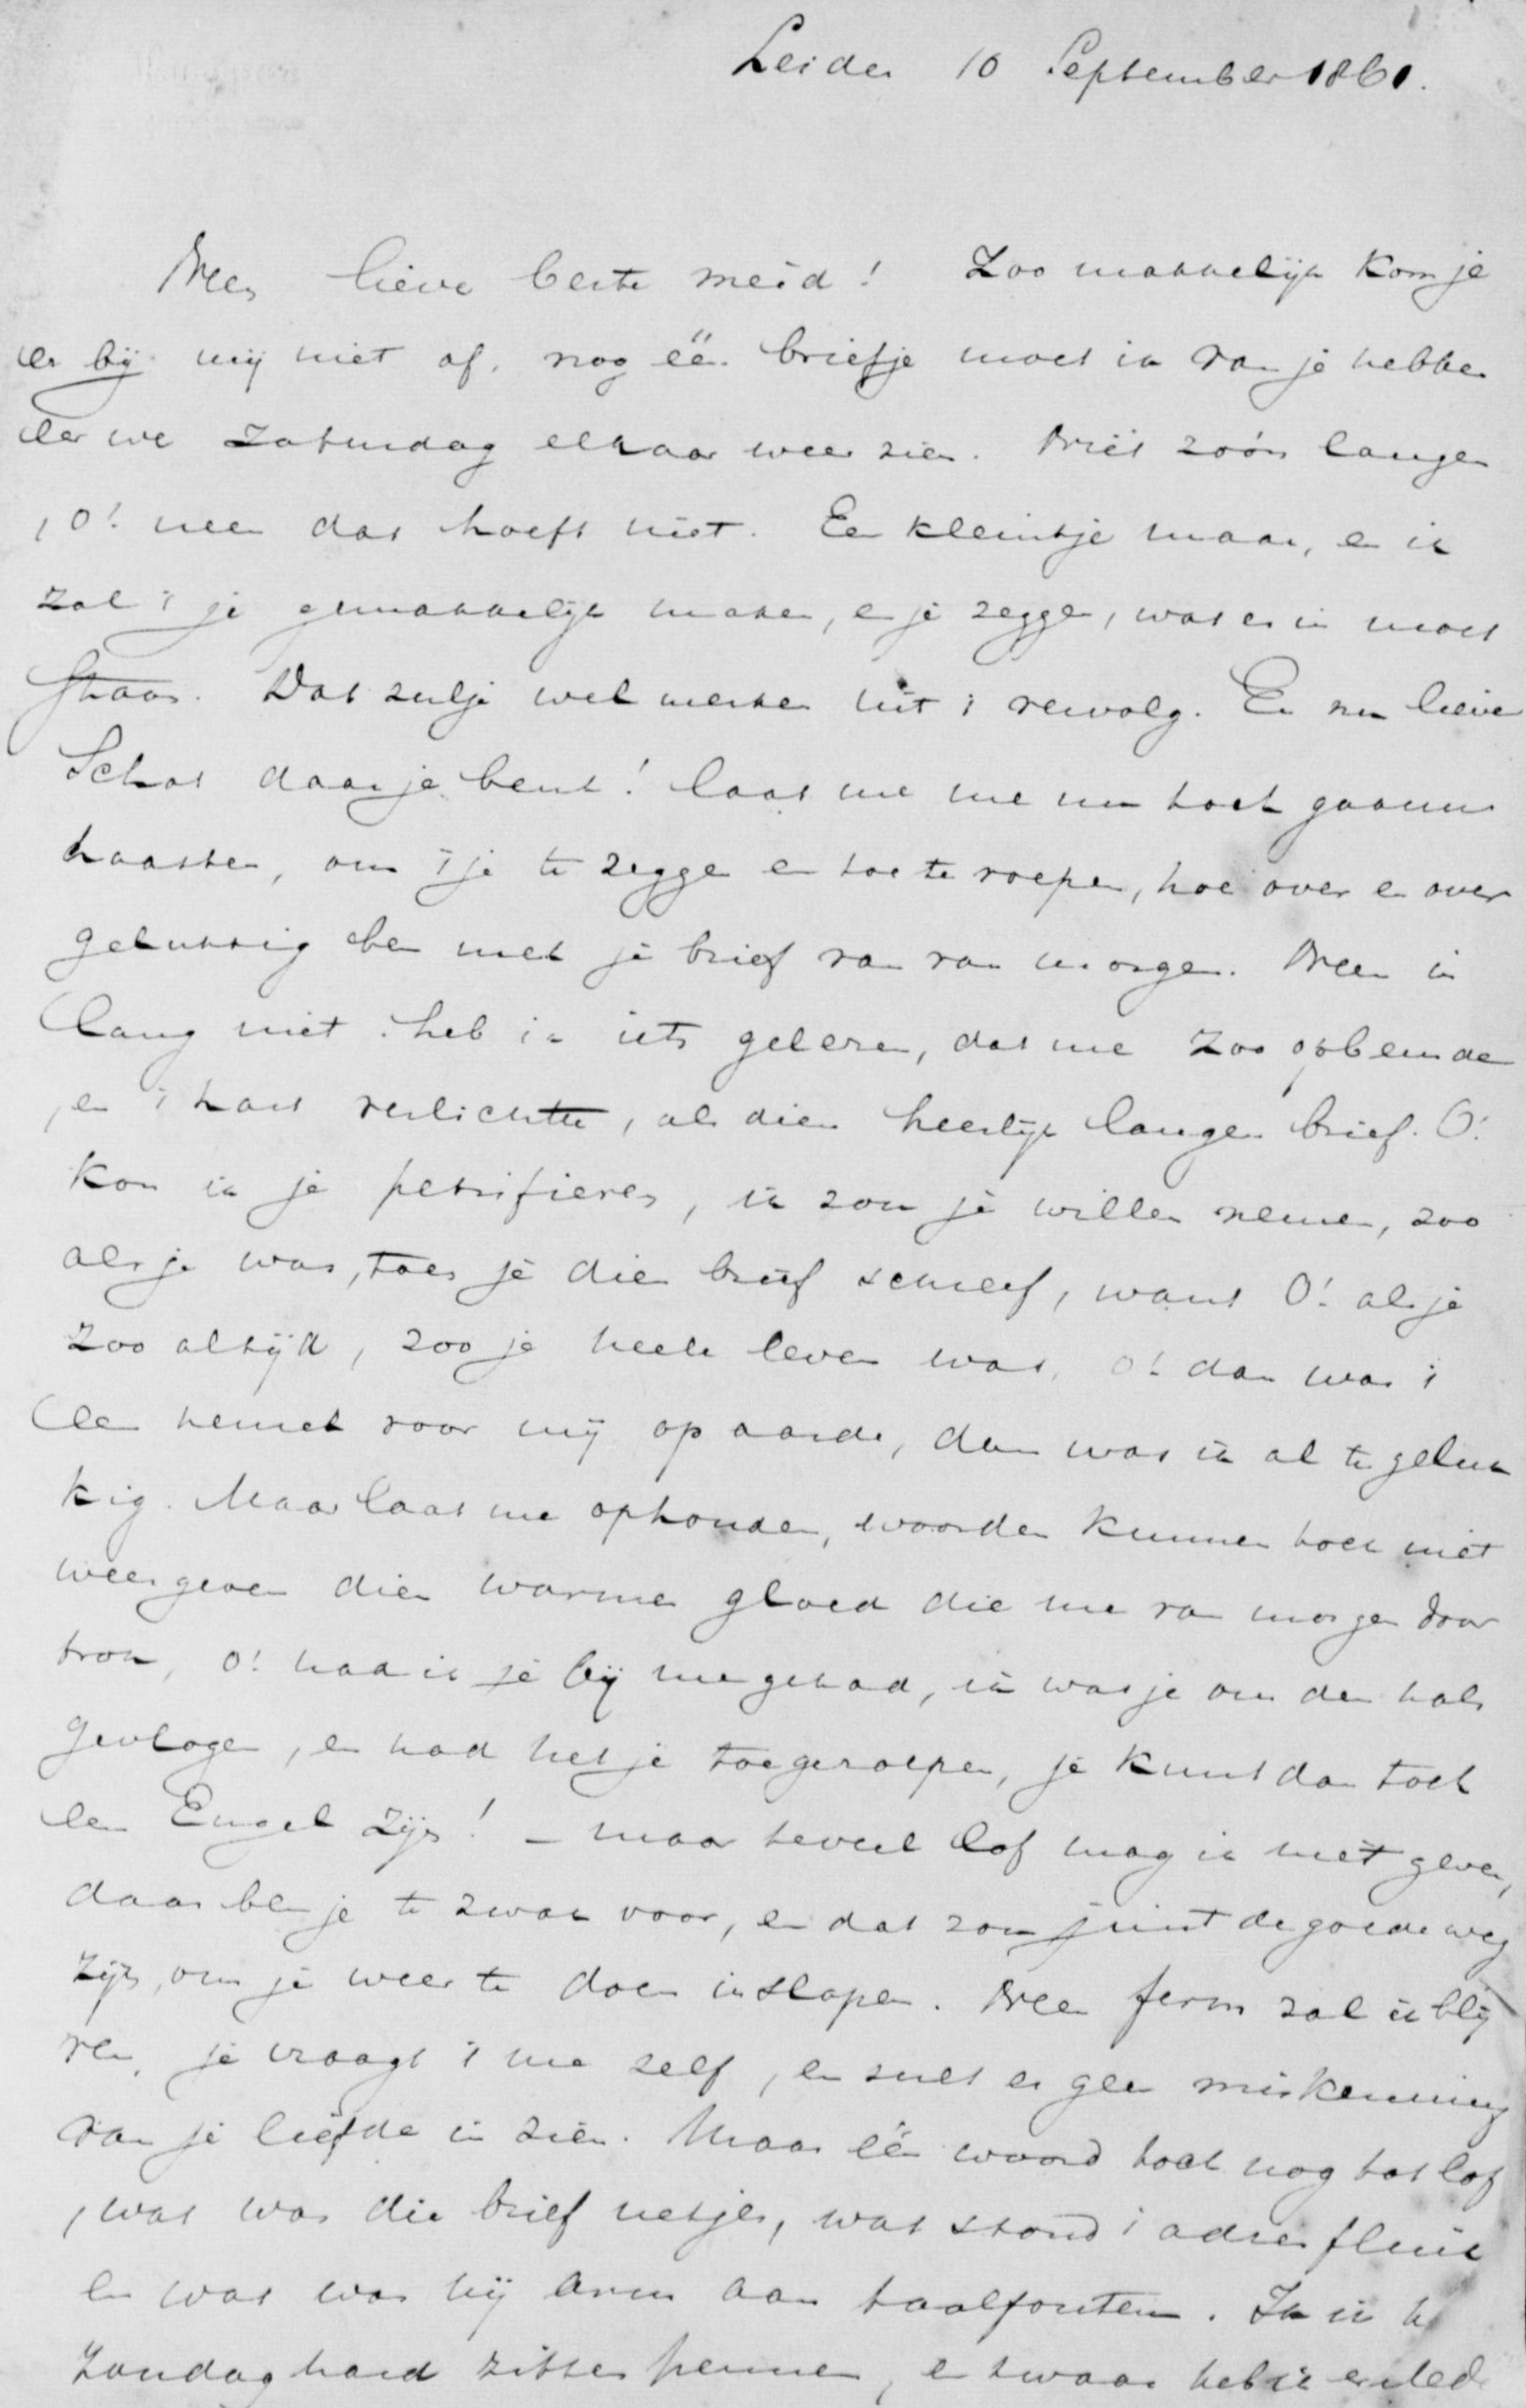 Leiden 10 September 1861.
Neen lieve beste meid! Zoo makkelijk kom je
er bij mij niet af, nog één briefje moet ik van je hebben
eer we Zaturdag elkaar weer zien. Niet zóó'n langen
, O! neen dat hoeft niet. Een kleintje maar, en ik
zal 't je gemakkelijk maken, en je zeggen, wat er in moet
staan. Dat zulje wel merken uit 't vervolg. En nu lieve
Schat daar je bent! laat me me nu toch gaauw
haasten, om 't je te zeggen en toe te roepen, hoe over en over
gelukkig ben met je brief van van morgen. Neen in
lang niet heb ik iets gelezen, dat me zoo opbeurde
, en 't hart verlichtte, als dien heerlijk langen brief. O!
kon ik je petrifieren, ik zou je willen nemen, zoo
als je was, toen je dien brief schreef, want O! als je
zoo altijd, zoo je heele leven was, o! dan was 't
een hemel voor mij op aarde, dan was ik al te geluk
kig. Maar laat me ophouden, woorden kunnen toch niet
weergeven dien warmen gloed die me van morgen door
trok, o! had ik je bij me gehad, ik was je om den hals
gevlogen, en had het je toegeroepen, je kunt dan toch
een Engel zijn! – maar teveel lof mag ik niet geven,
daar ben je te zwak voor, en dat zou juist de goede weg
zijn, om je weer te doen inslapen. Neen ferm zal ik blij
ven, je vraagt 't me zelf, en zult er geen miskenning
van je liefde in zien. Maar één woord toch nog tot lof
, wat was die brief netjes, wat stond 't adres fluis
en wat was hij arm aan taalfouten. Ik
Zondag hard zitten pennen, en zwaar heb ik